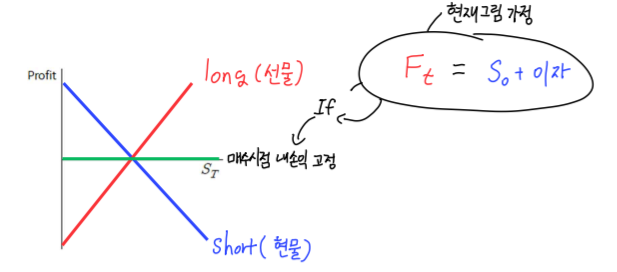 현재그림 가정
Ft = S0 + 이자
If
Profit
long (선물)
ST
매수시점 내 손익 고정
short (현물)